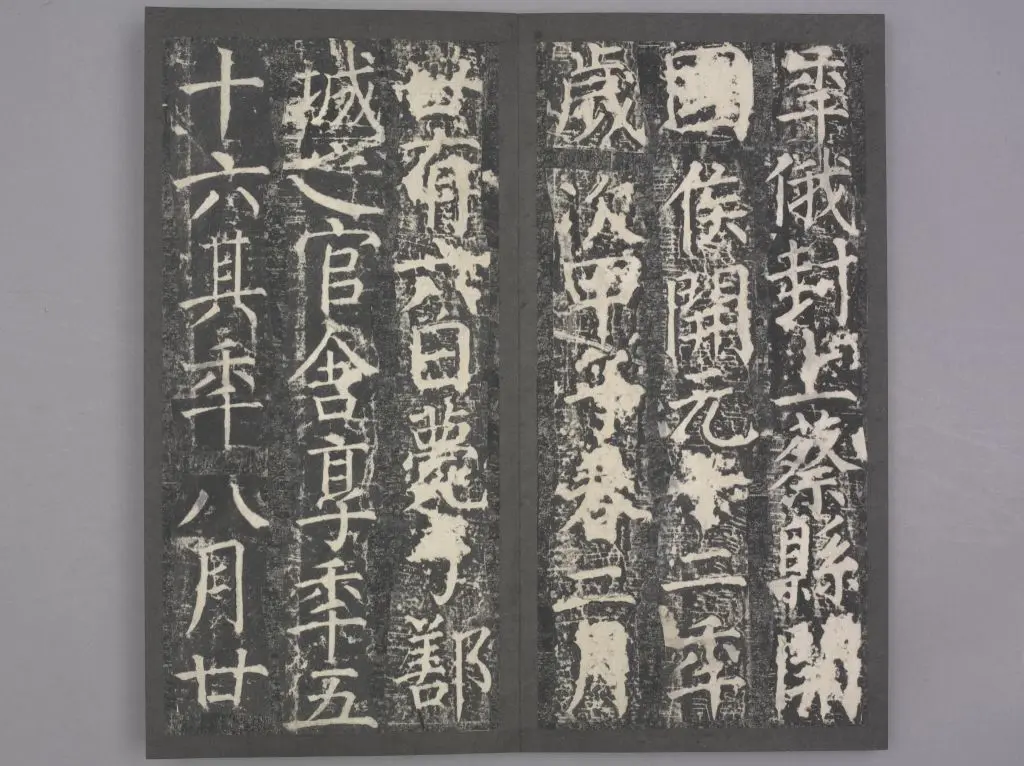 年俄封上蔡縣開
國侯開元十二年
歲次甲子春二月
廿有六日薨于鄯
城之官舍享年五
十六其年八月廿